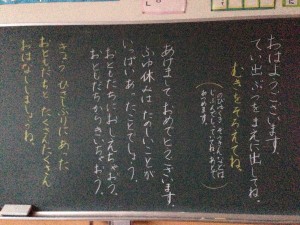 おはようございます。
ていしゅつぶつをまえに出してね。
むきをそろえてね。
あけましておめでとうございます。
ふゆ休みはたのしいことが
いっぱいあったことでしょう。
おともだちにおしえちゃおう。
おともだちからきいちゃおう。
きょう ひさしぶりにあった
おともだちと たくさんたくさん
おはなししましょうね。